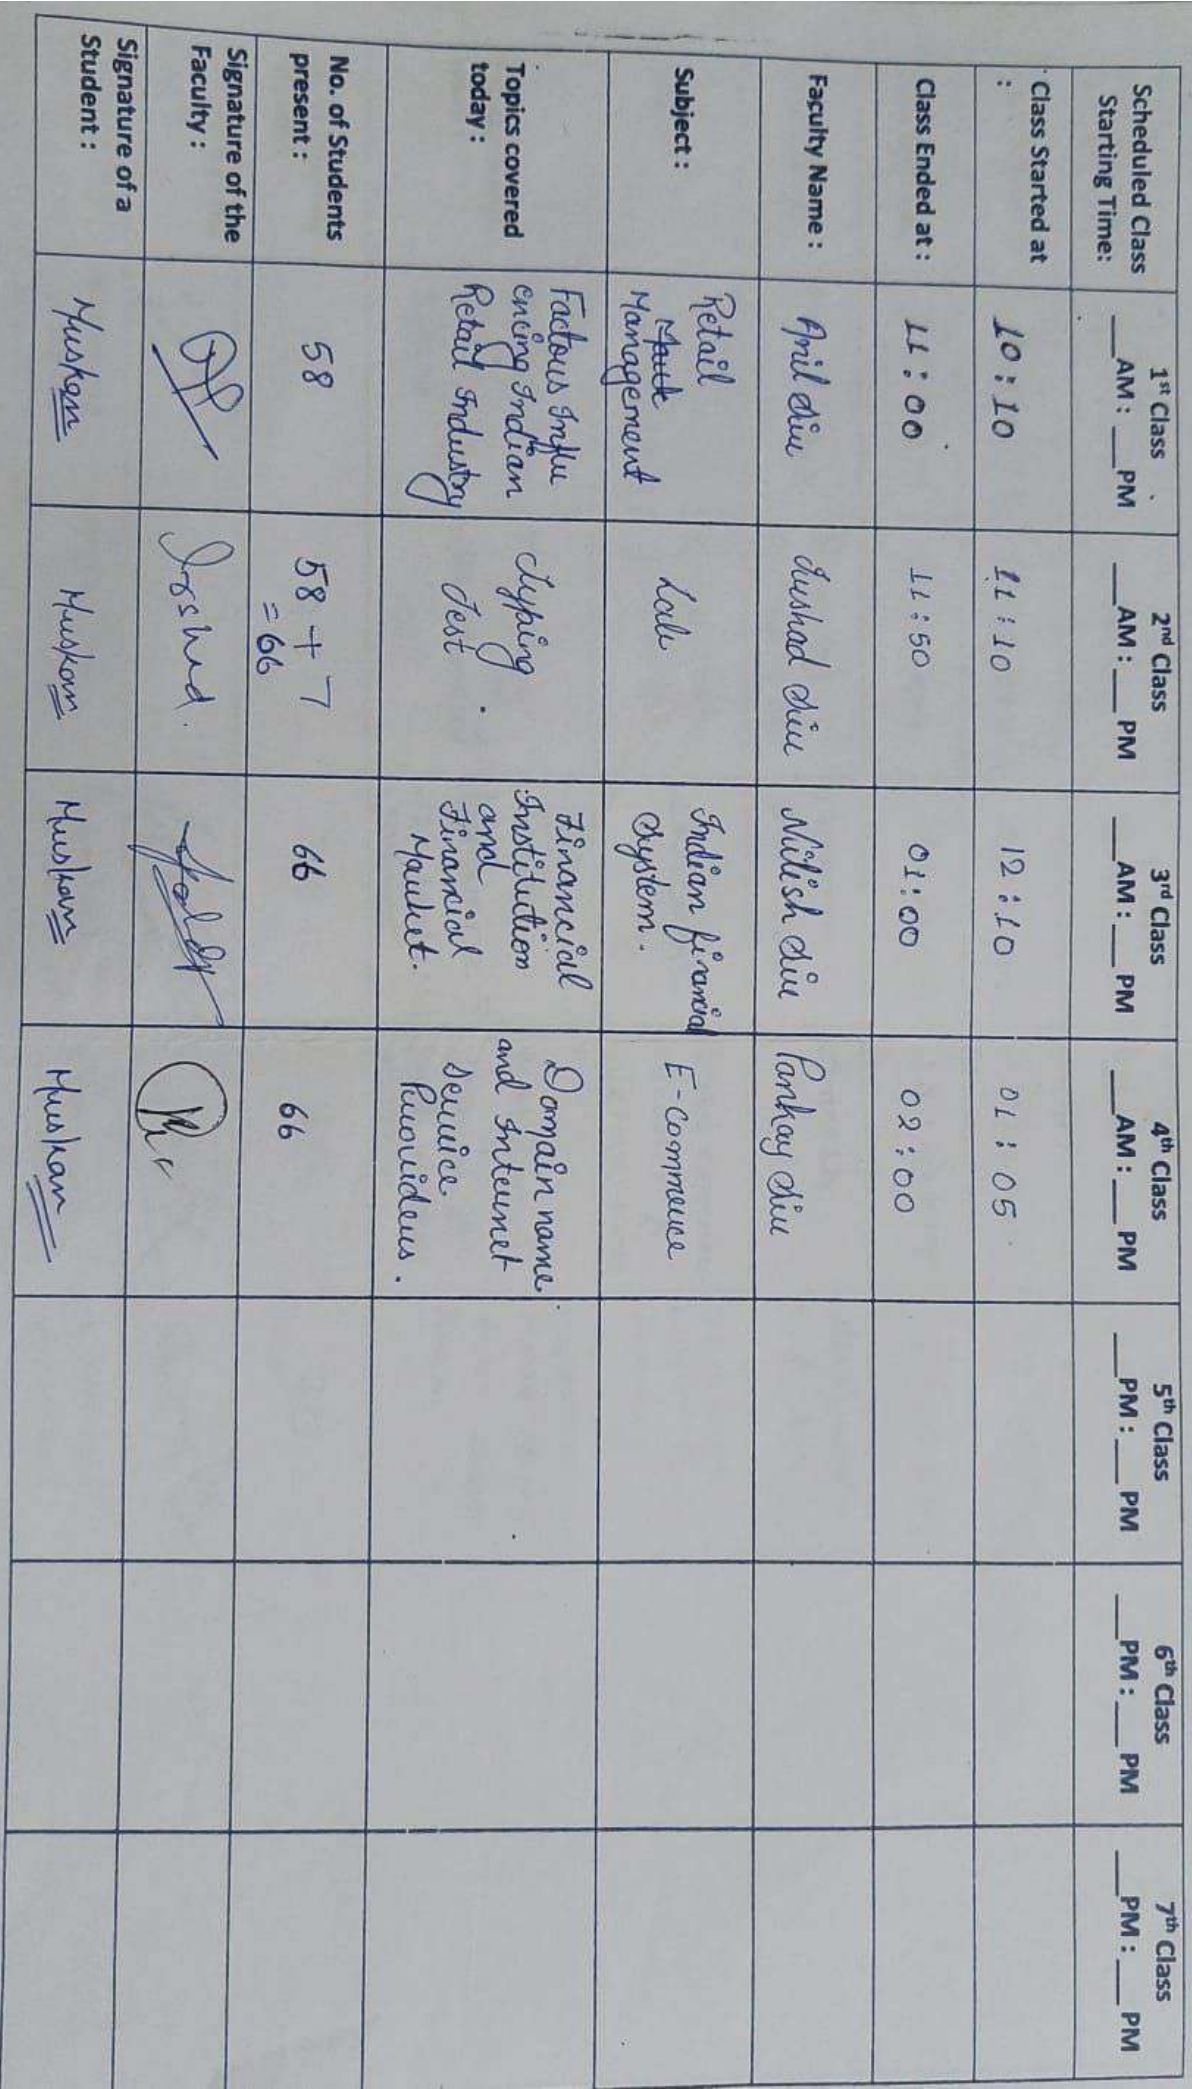 Scheduled Class Starting Time:
1st Class
__AM : __PM
2nd Class
__AM : __ PM
3rd Class
__AM : __ PM
4th Class
__AM : __ PM
5th Class
__PM : __ PM
6th Class
__PM : __ PM
7th Class
__PM : __ PM
Class Started at :
10 : 10
11 : 10
12 : 10
01 : 05
Class Ended at :
11 : 00
11 : 50
01 : 00
02 : 00
Faculty Name :
Anil Sir
Irshad Sir
Nitish Sir
Pankaj Sir
Subject :
Retail
Management
Lab
Indian financial
System.
E-commerce
Topics covered
today :
Factors Influ
encing Indian
Retail Industry
Typing
Test
Financial
Institution
and
Financial
Market.
Domain name
and Internet
Service
Providers.
No. of Students
present :
58
58 + 7
= 66
66
66
Signature of the
Faculty :
Irshad.
Signature of a
Student :
Muskan
Muskan
Muskan
Muskan